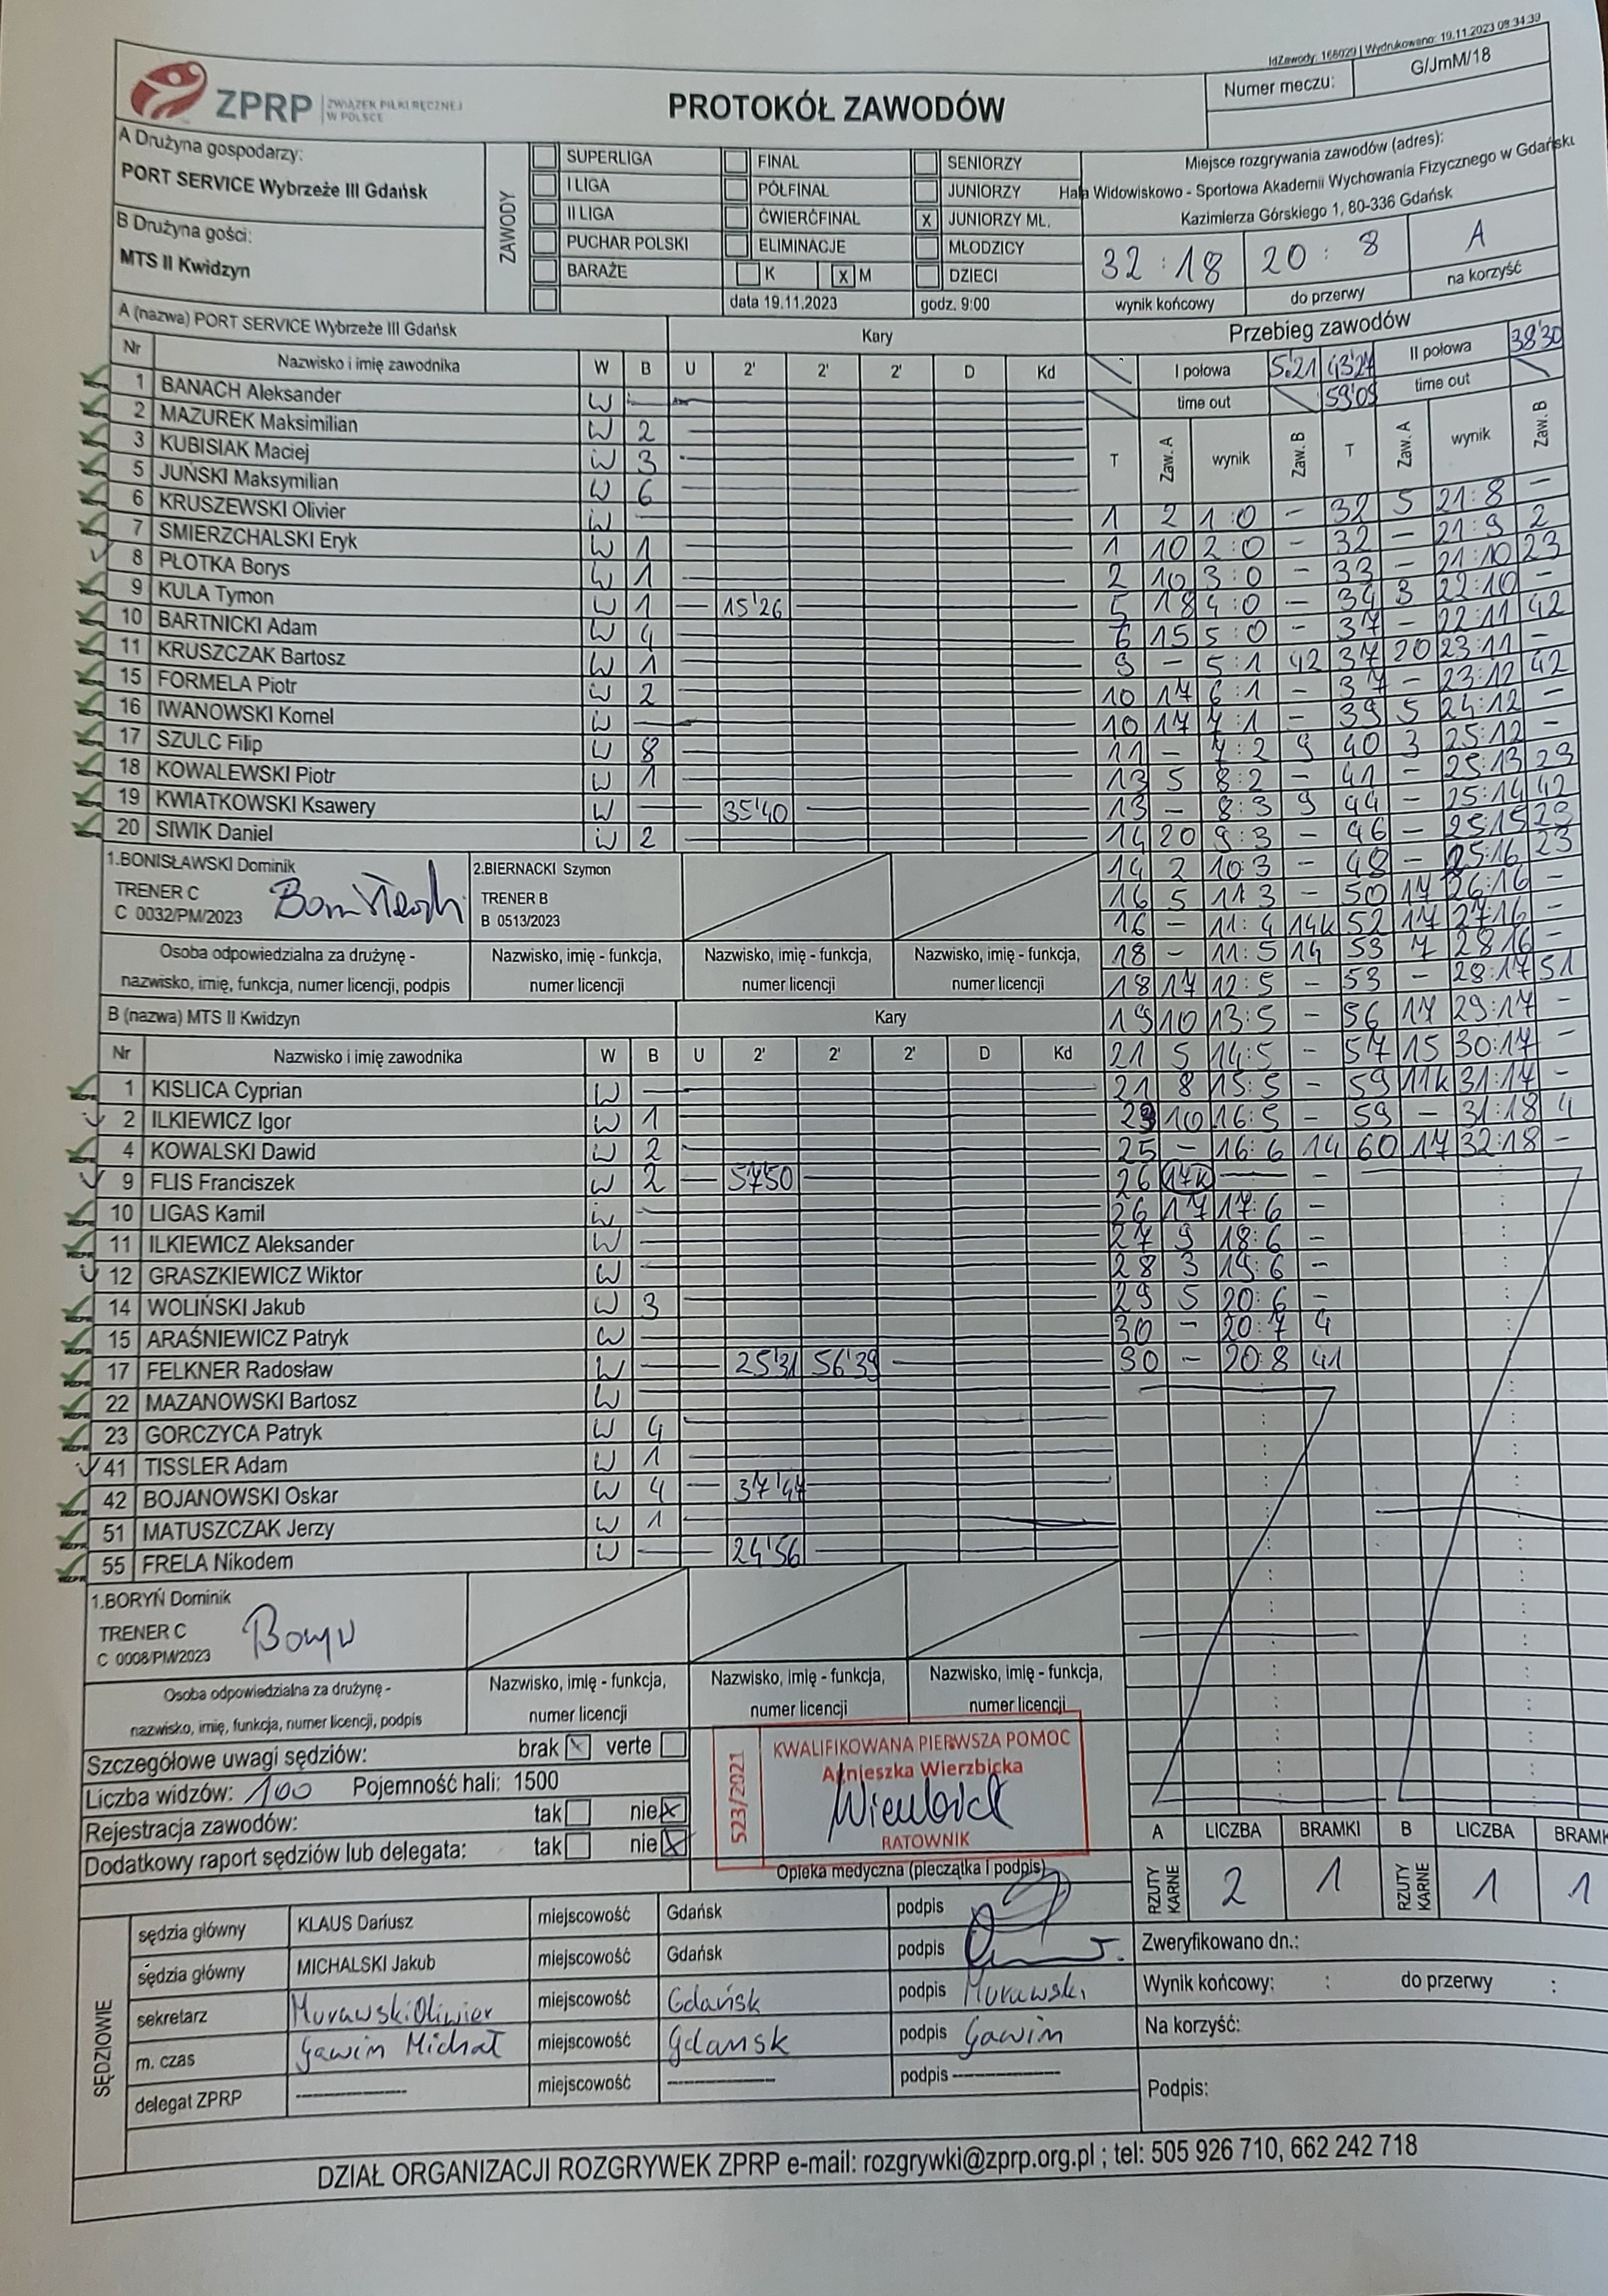 IdZawody: 168029 | Wydrukowano: 19.11.2023 08:34:39
ZPRP ZWIĄZEK PIŁKI RĘCZNEJ W POLSCE
PROTOKÓŁ ZAWODÓW
Numer meczu: G/JmM/18
A Drużyna gospodarzy:
PORT SERVICE Wybrzeże III Gdańsk
B Drużyna gości:
MTS II Kwidzyn
ZAWODY
SUPERLIGA FINAŁ SENIORZY
I LIGA PÓŁFINAŁ JUNIORZY
II LIGA ĆWIERĆFINAŁ X JUNIORZY MŁ.
PUCHAR POLSKI ELIMINACJE MŁODZICY
BARAŻE K X M DZIECI
data 19.11.2023 godz. 9:00
Miejsce rozgrywania zawodów (adres):
Hala Widowiskowo - Sportowa Akademii Wychowania Fizycznego w Gdańsku
Kazimierza Górskiego 1, 80-336 Gdańsk
32 : 18 20 : 8 A
wynik końcowy do przerwy na korzyść
A (nazwa) PORT SERVICE Wybrzeże III Gdańsk Kary
Nr Nazwisko i imię zawodnika W B U 2' 2' 2' D Kd
1 BANACH Aleksander W
2 MAZUREK Maksimilian W 2
3 KUBISIAK Maciej W 3
5 JUŃSKI Maksymilian W 6
6 KRUSZEWSKI Olivier W
7 SMIERZCHALSKI Eryk W 1
8 PŁOTKA Borys W 1
9 KULA Tymon W 1 15'26
10 BARTNICKI Adam W 4
11 KRUSZCZAK Bartosz W 1
15 FORMELA Piotr W 2
16 IWANOWSKI Kornel W
17 SZULC Filip W 8
18 KOWALEWSKI Piotr W 1
19 KWIATKOWSKI Ksawery W 35'40
20 SIWIK Daniel W 2
1.BONISŁAWSKI Dominik
TRENER C
C 0032/PM/2023
2.BIERNACKI Szymon
TRENER B
B 0513/2023
Osoba odpowiedzialna za drużynę -
nazwisko, imię, funkcja, numer licencji, podpis
Nazwisko, imię - funkcja,
numer licencji
Nazwisko, imię - funkcja,
numer licencji
Nazwisko, imię - funkcja,
numer licencji
B (nazwa) MTS II Kwidzyn Kary
Nr Nazwisko i imię zawodnika W B U 2' 2' 2' D Kd
1 KISLICA Cyprian W
2 ILKIEWICZ Igor W 1
4 KOWALSKI Dawid W 2
9 FLIS Franciszek W 2 57'50
10 LIGAS Kamil W
11 ILKIEWICZ Aleksander W
12 GRASZKIEWICZ Wiktor W
14 WOLIŃSKI Jakub W 3
15 ARAŚNIEWICZ Patryk W
17 FELKNER Radosław W 25'31 56'39
22 MAZANOWSKI Bartosz W
23 GORCZYCA Patryk W 4
41 TISSLER Adam W 1
42 BOJANOWSKI Oskar W 4 37'47
51 MATUSZCZAK Jerzy W 1
55 FRELA Nikodem W 24'56
1.BORYŃ Dominik
TRENER C
C 0008/PM/2023
Osoba odpowiedzialna za drużynę -
nazwisko, imię, funkcja, numer licencji, podpis
Nazwisko, imię - funkcja,
numer licencji
Nazwisko, imię - funkcja,
numer licencji
Nazwisko, imię - funkcja,
numer licencji
Przebieg zawodów
I połowa 5:21 43'27 II połowa 38'30
time out 59'09 time out
T Zaw. A wynik Zaw. B T Zaw. A wynik Zaw. B
1 2 1:0 - 32 5 21:8 -
1 10 2:0 - 32 - 21:9 2
2 10 3:0 - 33 - 21:10 23
5 18 4:0 - 34 3 22:10 -
6 15 5:0 - 37 - 22:11 42
9 - 5:1 42 37 20 23:11 -
10 17 6:1 - 37 - 23:12 42
10 17 7:1 - 39 5 24:12 -
11 - 7:2 9 40 3 25:12 -
13 5 8:2 - 41 - 25:13 23
13 - 8:3 9 44 - 25:14 42
14 20 9:3 - 46 - 25:15 23
14 2 10:3 - 48 - 25:16 23
16 5 11:3 - 50 17 26:16 -
16 - 11:4 14k 52 17 27:16 -
18 - 11:5 14 53 7 28:16 -
18 17 12:5 - 53 - 28:17 51
19 10 13:5 - 56 17 29:17 -
21 5 14:5 - 57 15 30:17 -
21 8 15:5 - 59 11k 31:17 -
23 10 16:5 - 59 - 31:18 4
25 - 16:6 14 60 17 32:18 -
26 17k -
26 17 17:6 -
27 9 18:6 -
28 3 19:6 -
29 5 20:6 -
30 - 20:7 4
30 - 20:8 41
Szczegółowe uwagi sędziów: brak x verte
Liczba widzów: 100 Pojemność hali: 1500
Rejestracja zawodów: tak nie x
Dodatkowy raport sędziów lub delegata: tak nie x
523/2021
KWALIFIKOWANA PIERWSZA POMOC
Agnieszka Wierzbicka
RATOWNIK
Opieka medyczna (pieczątka i podpis)
A LICZBA BRAMKI B LICZBA BRAMK
RZUTY KARNE 2 1 RZUTY KARNE 1 1
SĘDZIOWIE
sędzia główny KLAUS Dariusz miejscowość Gdańsk podpis
sędzia główny MICHALSKI Jakub miejscowość Gdańsk podpis
sekretarz Murawski Oliwier miejscowość Gdańsk podpis Murawski
m. czas Gawin Michał miejscowość Gdańsk podpis Gawin
delegat ZPRP miejscowość podpis
Zweryfikowano dn.:
Wynik końcowy: : do przerwy :
Na korzyść:
Podpis:
DZIAŁ ORGANIZACJI ROZGRYWEK ZPRP e-mail: rozgrywki@zprp.org.pl ; tel: 505 926 710, 662 242 718